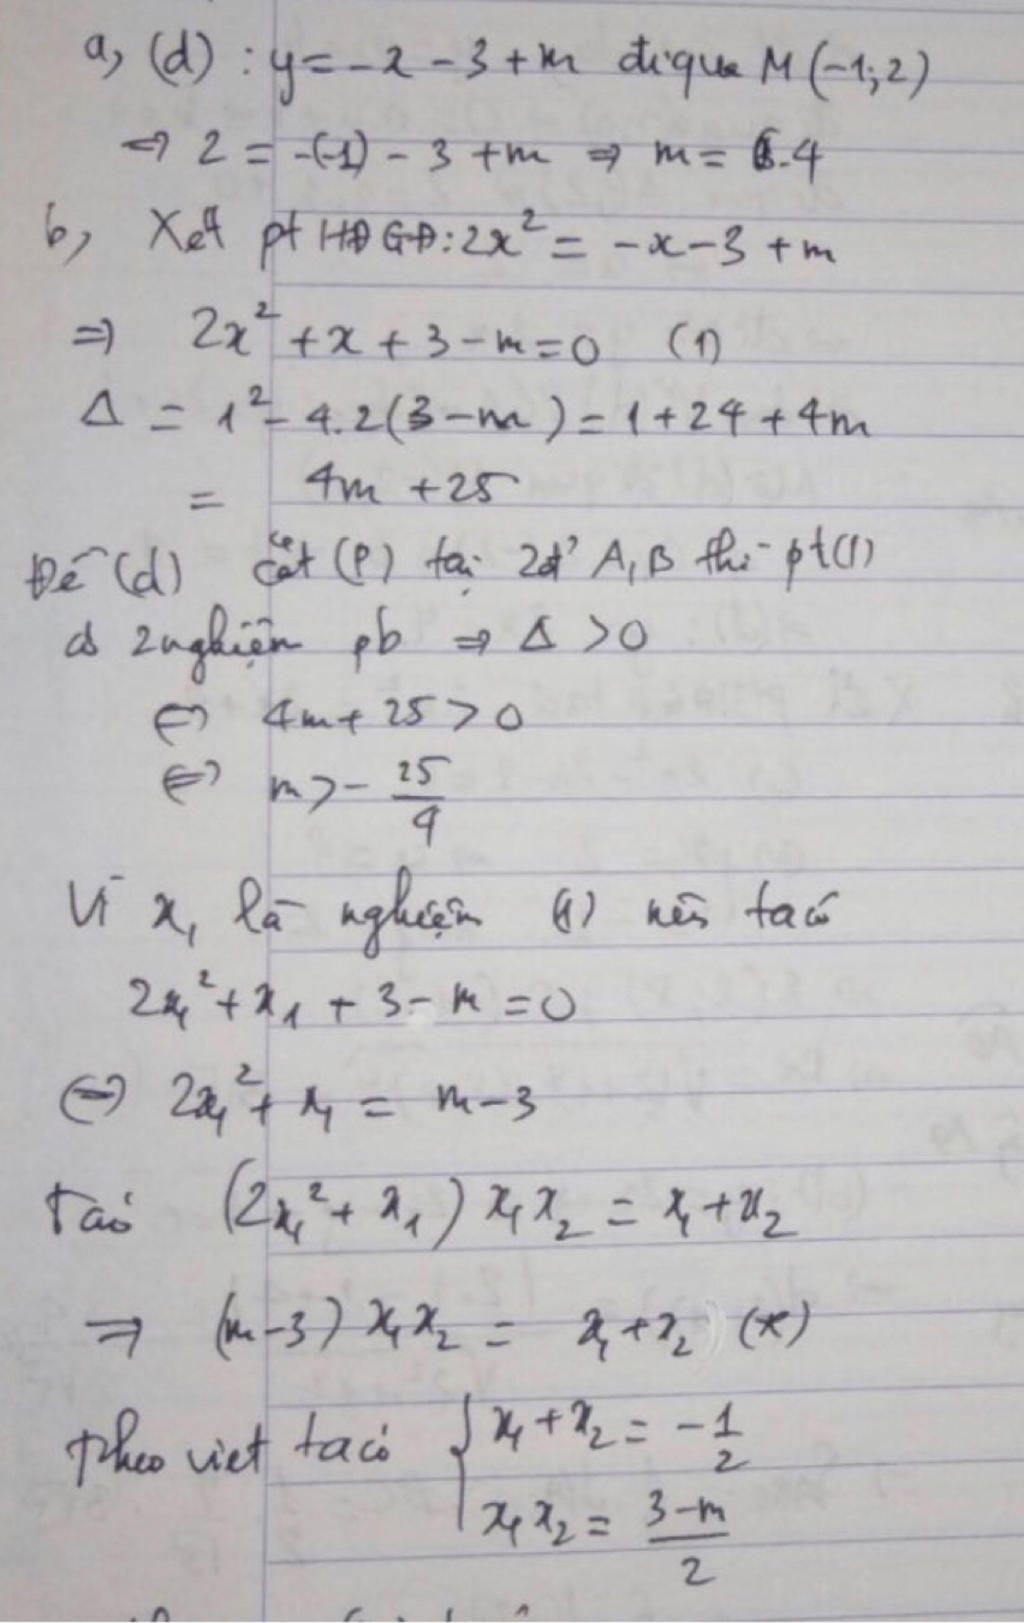 a, (d) : y = -x - 3 + m đi qua M (-1; 2)
⇒ 2 = -(-1) - 3 + m ⇒ m = 4
b, Xét pt HĐGĐ: 2x² = -x - 3 + m
⇒ 2x² + x + 3 - m = 0 (1)
Δ = 1² - 4.2(3 - m) = 1 + 24 + 4m
= 4m + 25
Để (d) cắt (P) tại 2đ' A, B thì pt(1)
có 2 nghiệm pb ⇒ Δ > 0
⇔ 4m + 25 > 0
⇔ m > - 25/4
Vì x₁ là nghiệm (1) nên ta có
2x₁² + x₁ + 3 - m = 0
⇔ 2x₁² + x₁ = m - 3
Ta có (2x₁² + x₁) x₁x₂ = x₁ + x₂
⇒ (m - 3) x₁x₂ = x₁ + x₂ (*)
Theo viet ta có { x₁ + x₂ = -1/2
x₁x₂ = 3-m/2